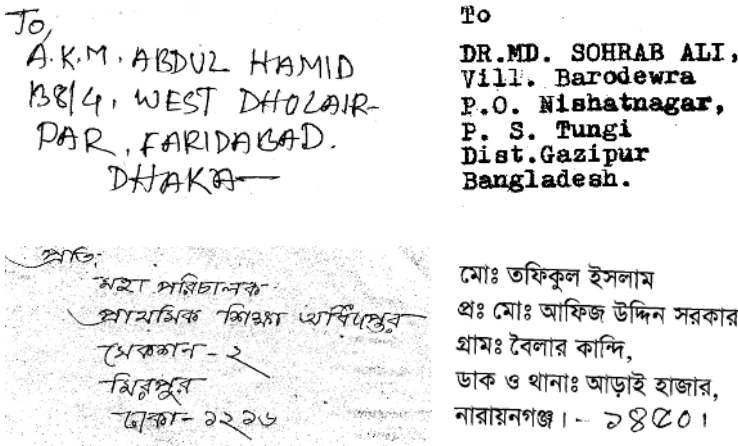 To,
A.K.M. ABDUL HAMID
138/4, WEST DHOLAIR-
PAR, FARIDABAD.
DHAKA—
To
DR.MD. SOHRAB ALI,
Vill. Barodewra
P.O. Nishatnagar,
P. S. Tungi
Dist.Gazipur
Bangladesh.
প্রতি:
মহা পরিচালক
প্রাথমিক শিক্ষা অধিদপ্তর
সেকশন - ২
মিরপুর
ঢাকা - ১২১৬
মোঃ তফিকুল ইসলাম
প্রঃ মোঃ আফিজ উদ্দিন সরকার
গ্রামঃ বৈলার কান্দি,
ডাক ও থানাঃ আড়াই হাজার,
নারায়নগঞ্জ।- ১৪৫০।